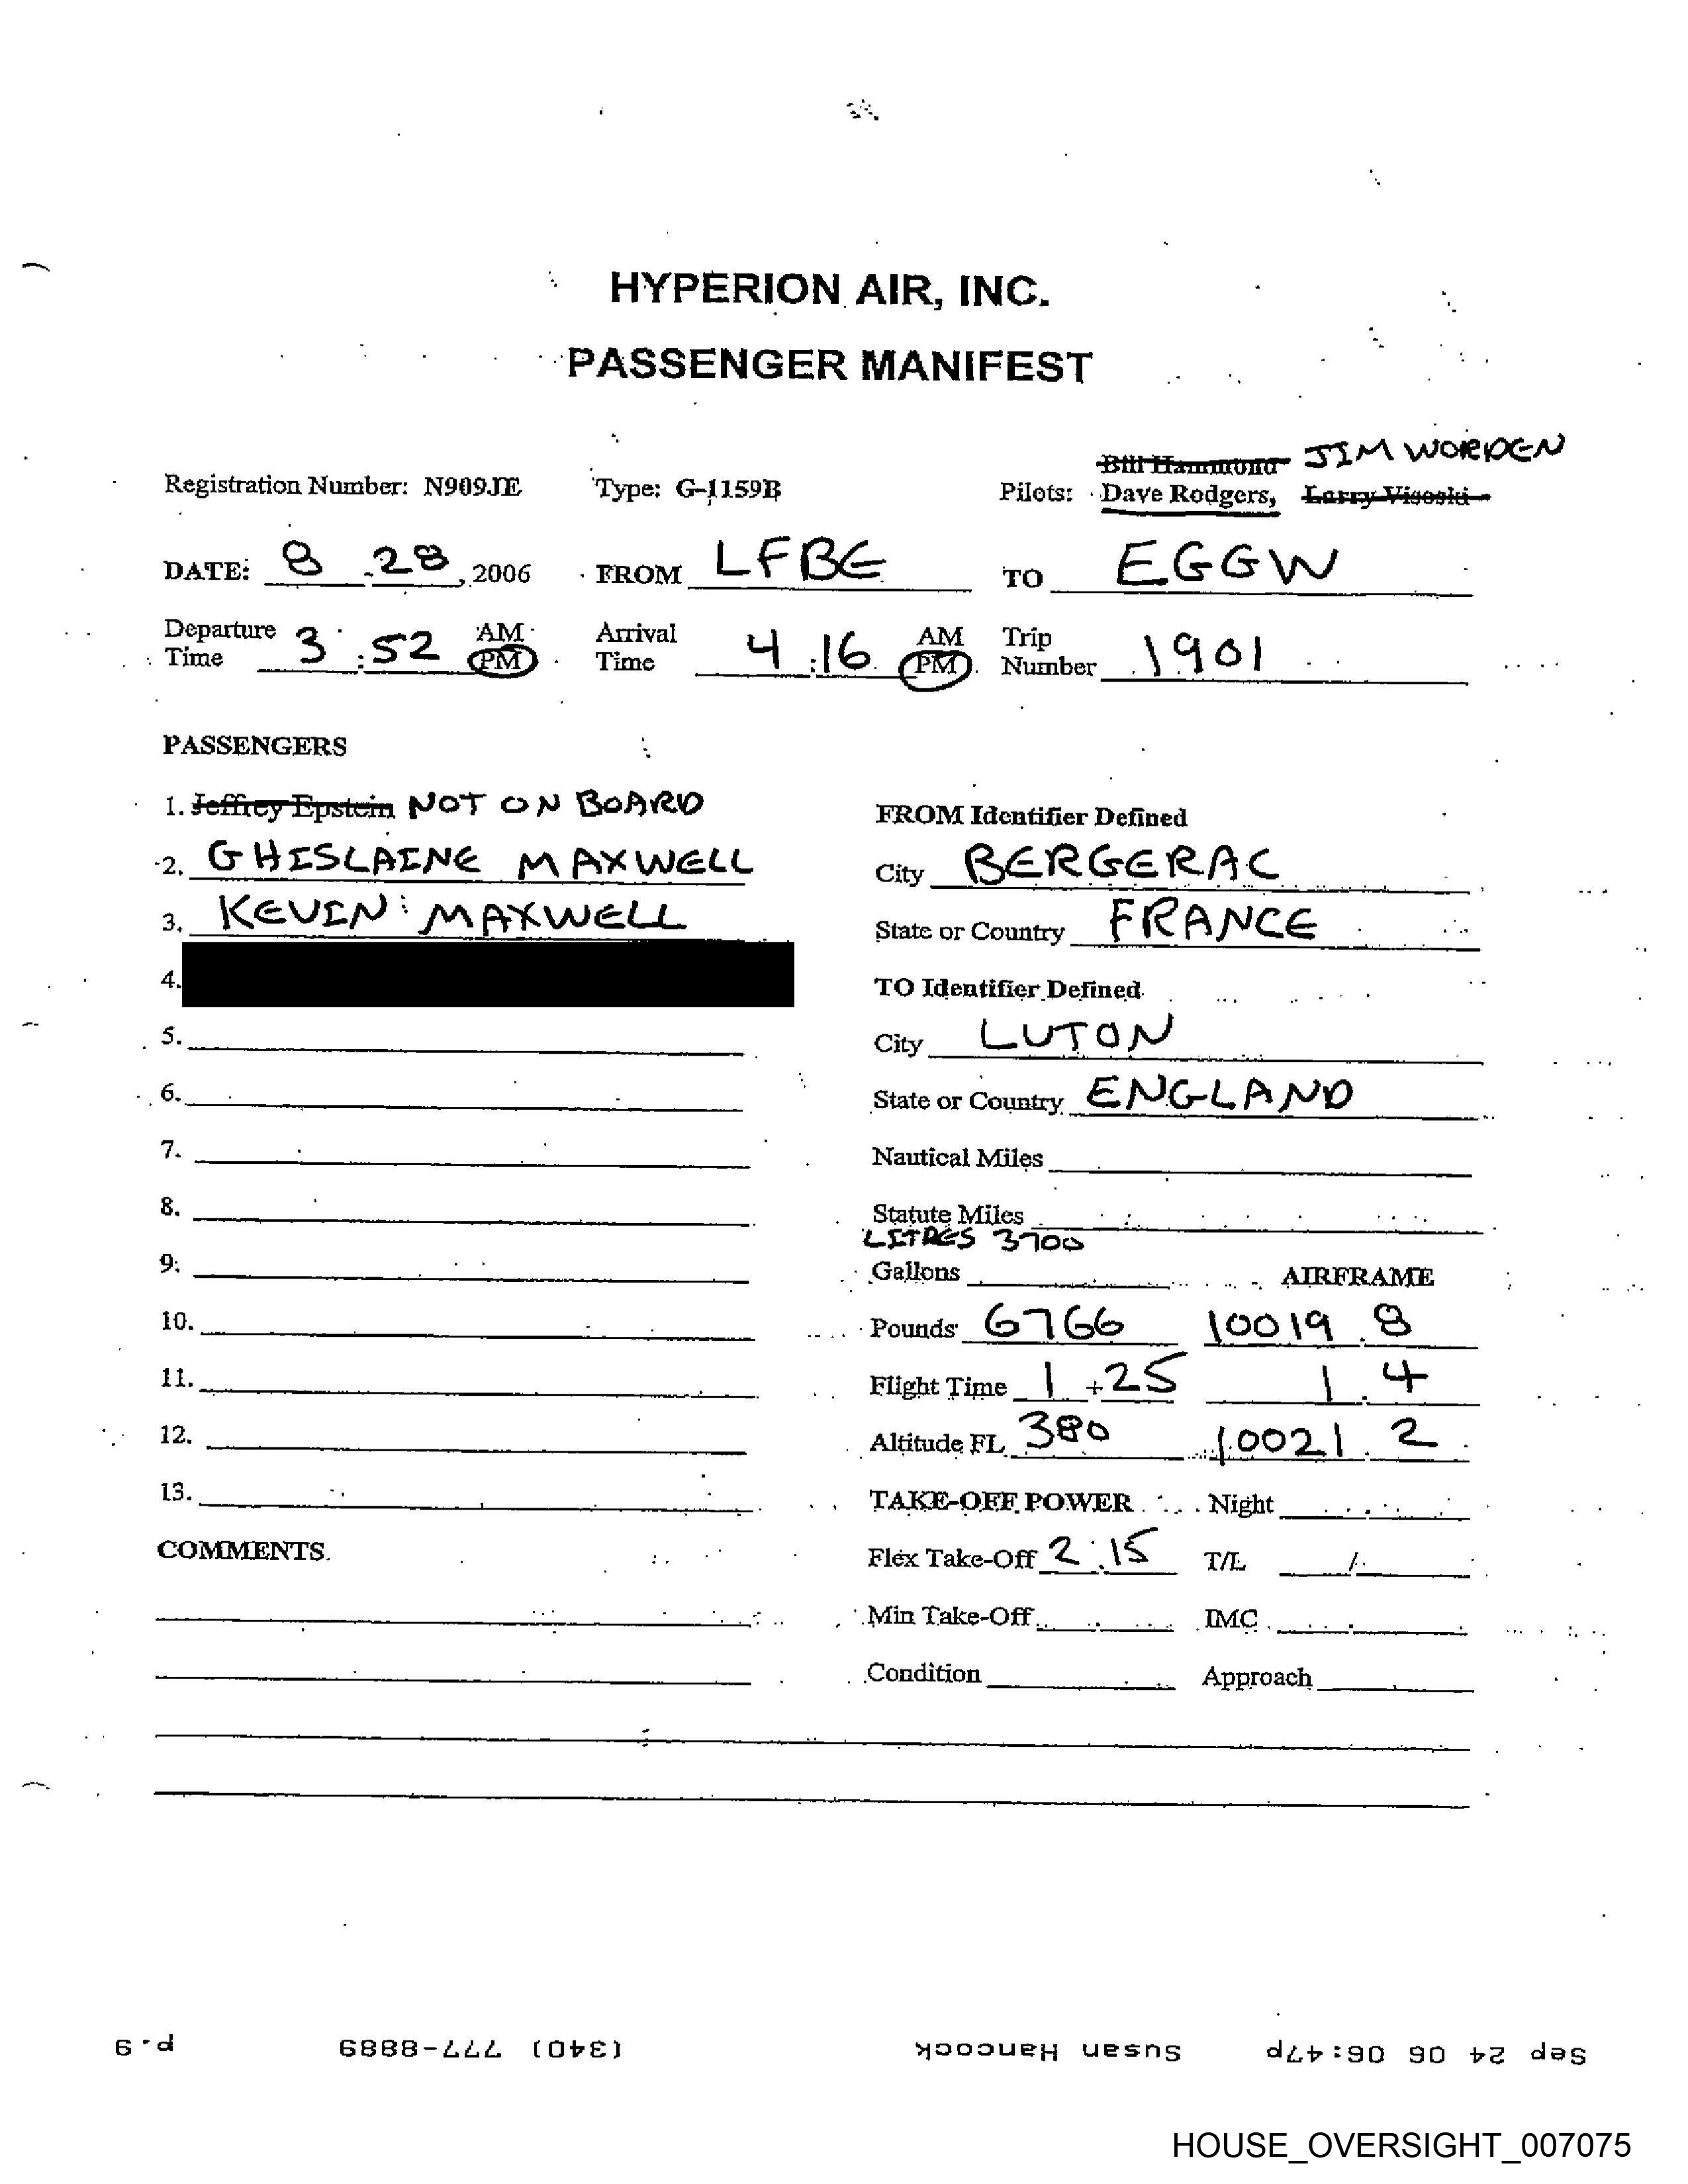 HYPERION AIR, INC.
PASSENGER MANIFEST
Bill Hammond JIM WORDEN
Registration Number: N909JE Type: G-1159B Pilots: Dave Rodgers, Larry Visoski
DATE: 8 - 28, 2006 FROM LFBE TO EGGW
Departure Time 3 : 52 AM PM Arrival Time 4 : 16 AM PM Trip Number 1901
PASSENGERS
1. Jeffrey Epstein NOT ON BOARD
2. GHISLAINE MAXWELL
3. KEVIN MAXWELL
4.
5.
6.
7.
8.
9.
10.
11.
12.
13.
COMMENTS
FROM Identifier Defined
City BERGERAC
State or Country FRANCE
TO Identifier Defined
City LUTON
State or Country ENGLAND
Nautical Miles
Statute Miles
LITRES 3700
Gallons AIRFRAME
Pounds 6766 10019 . 8
Flight Time 1 + 25 1 . 4
Altitude FL 380 10021 . 2
TAKE-OFF POWER Night
Flex Take-Off 2 : 15 T/L /
Min Take-Off IMC
Condition Approach
Sep 24 06 06:47p Susan Hancock (340) 777-8889 p.9
HOUSE_OVERSIGHT_007075